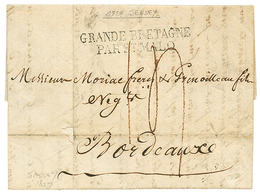 1828 JERSEY
GRANDE BRETAGNE
PAR ST MALO
Messieurs Moriac frères & Grenouilleau fils
Neg.ts
Bordeaux